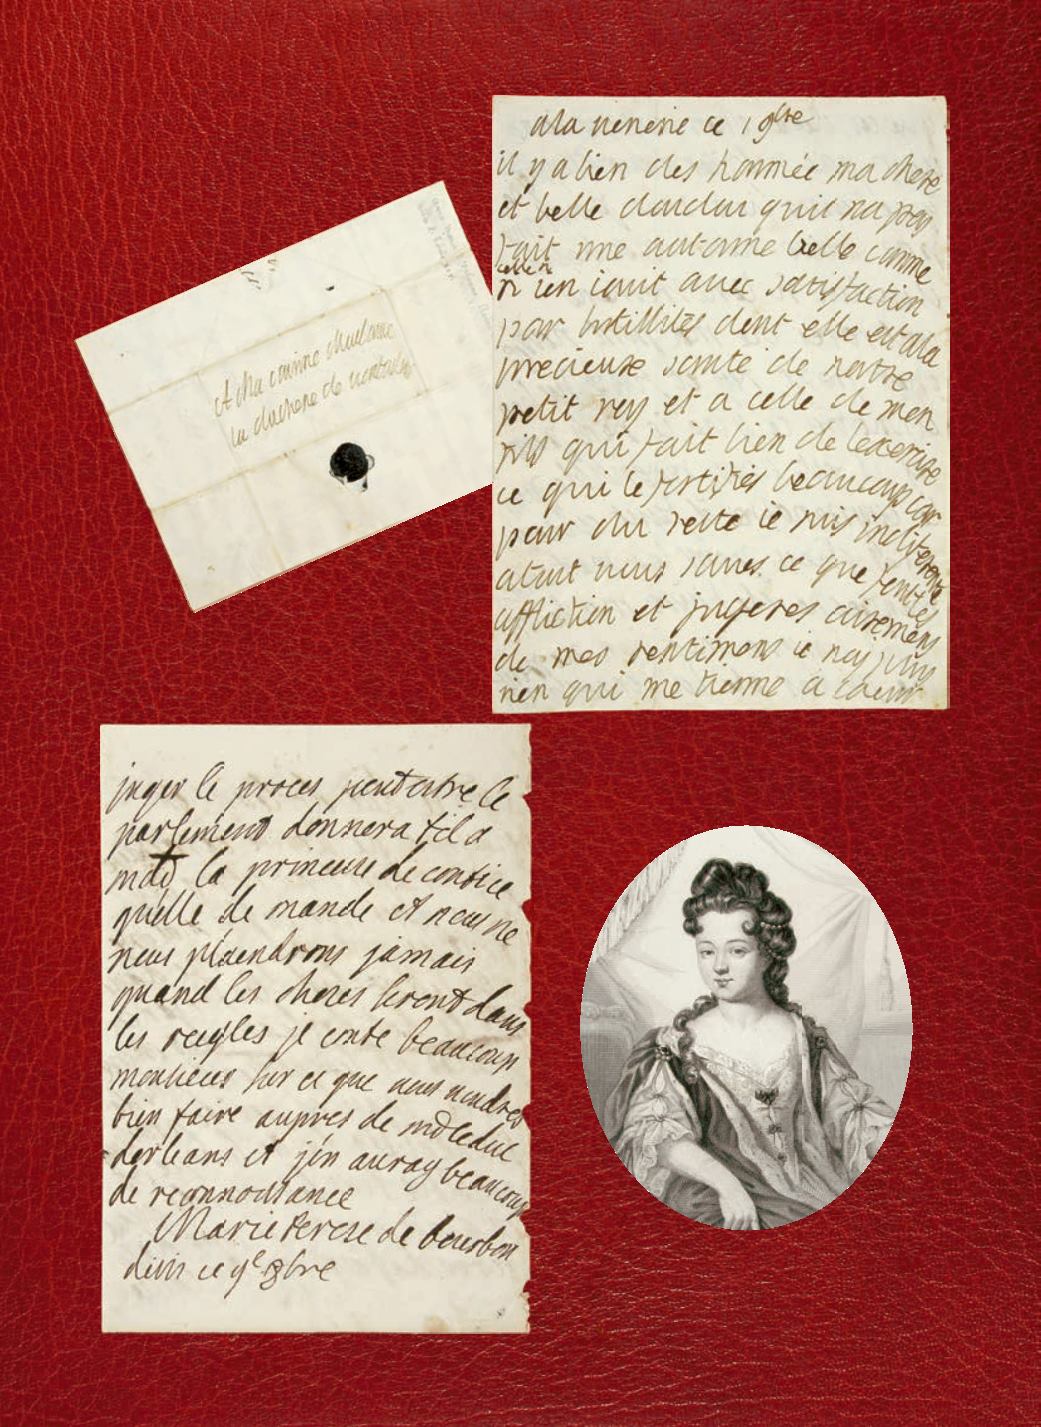 A Ma cousine Madame
la duchesse de ventadour
ala venerie ce 1 9bre
il y a bien des année ma chere
et belle doudou quil na pas
fait une automne belle comme
celle cy
ien iouit avec satisfaction
par lutillités dont elle est ala
precieuse santé de nostre
petit roy et a celle de mon
fils qui fait bien de lexercise
ce qui le fortifiés beaucoup car
pour du reste ie suis indiferente
atout vous savés ce que
affliction et jugeres aisement
de mes sentimens ie nay plus
rien qui me tienne a coeur
juger le proces peutestre le
parlement donnera til a
mad la princesse de conti ce
quelle de mande et nous ne
nous plaindrons jamais
quand les choses seront dans
les reigles je conte beaucoup
monsieur sur ce que vous voudres
bien faire aupres de mr le duc
dorleans et jen auray beaucoup
de reconnoissance
Marie terese de bourbon
ce 9e 8bre